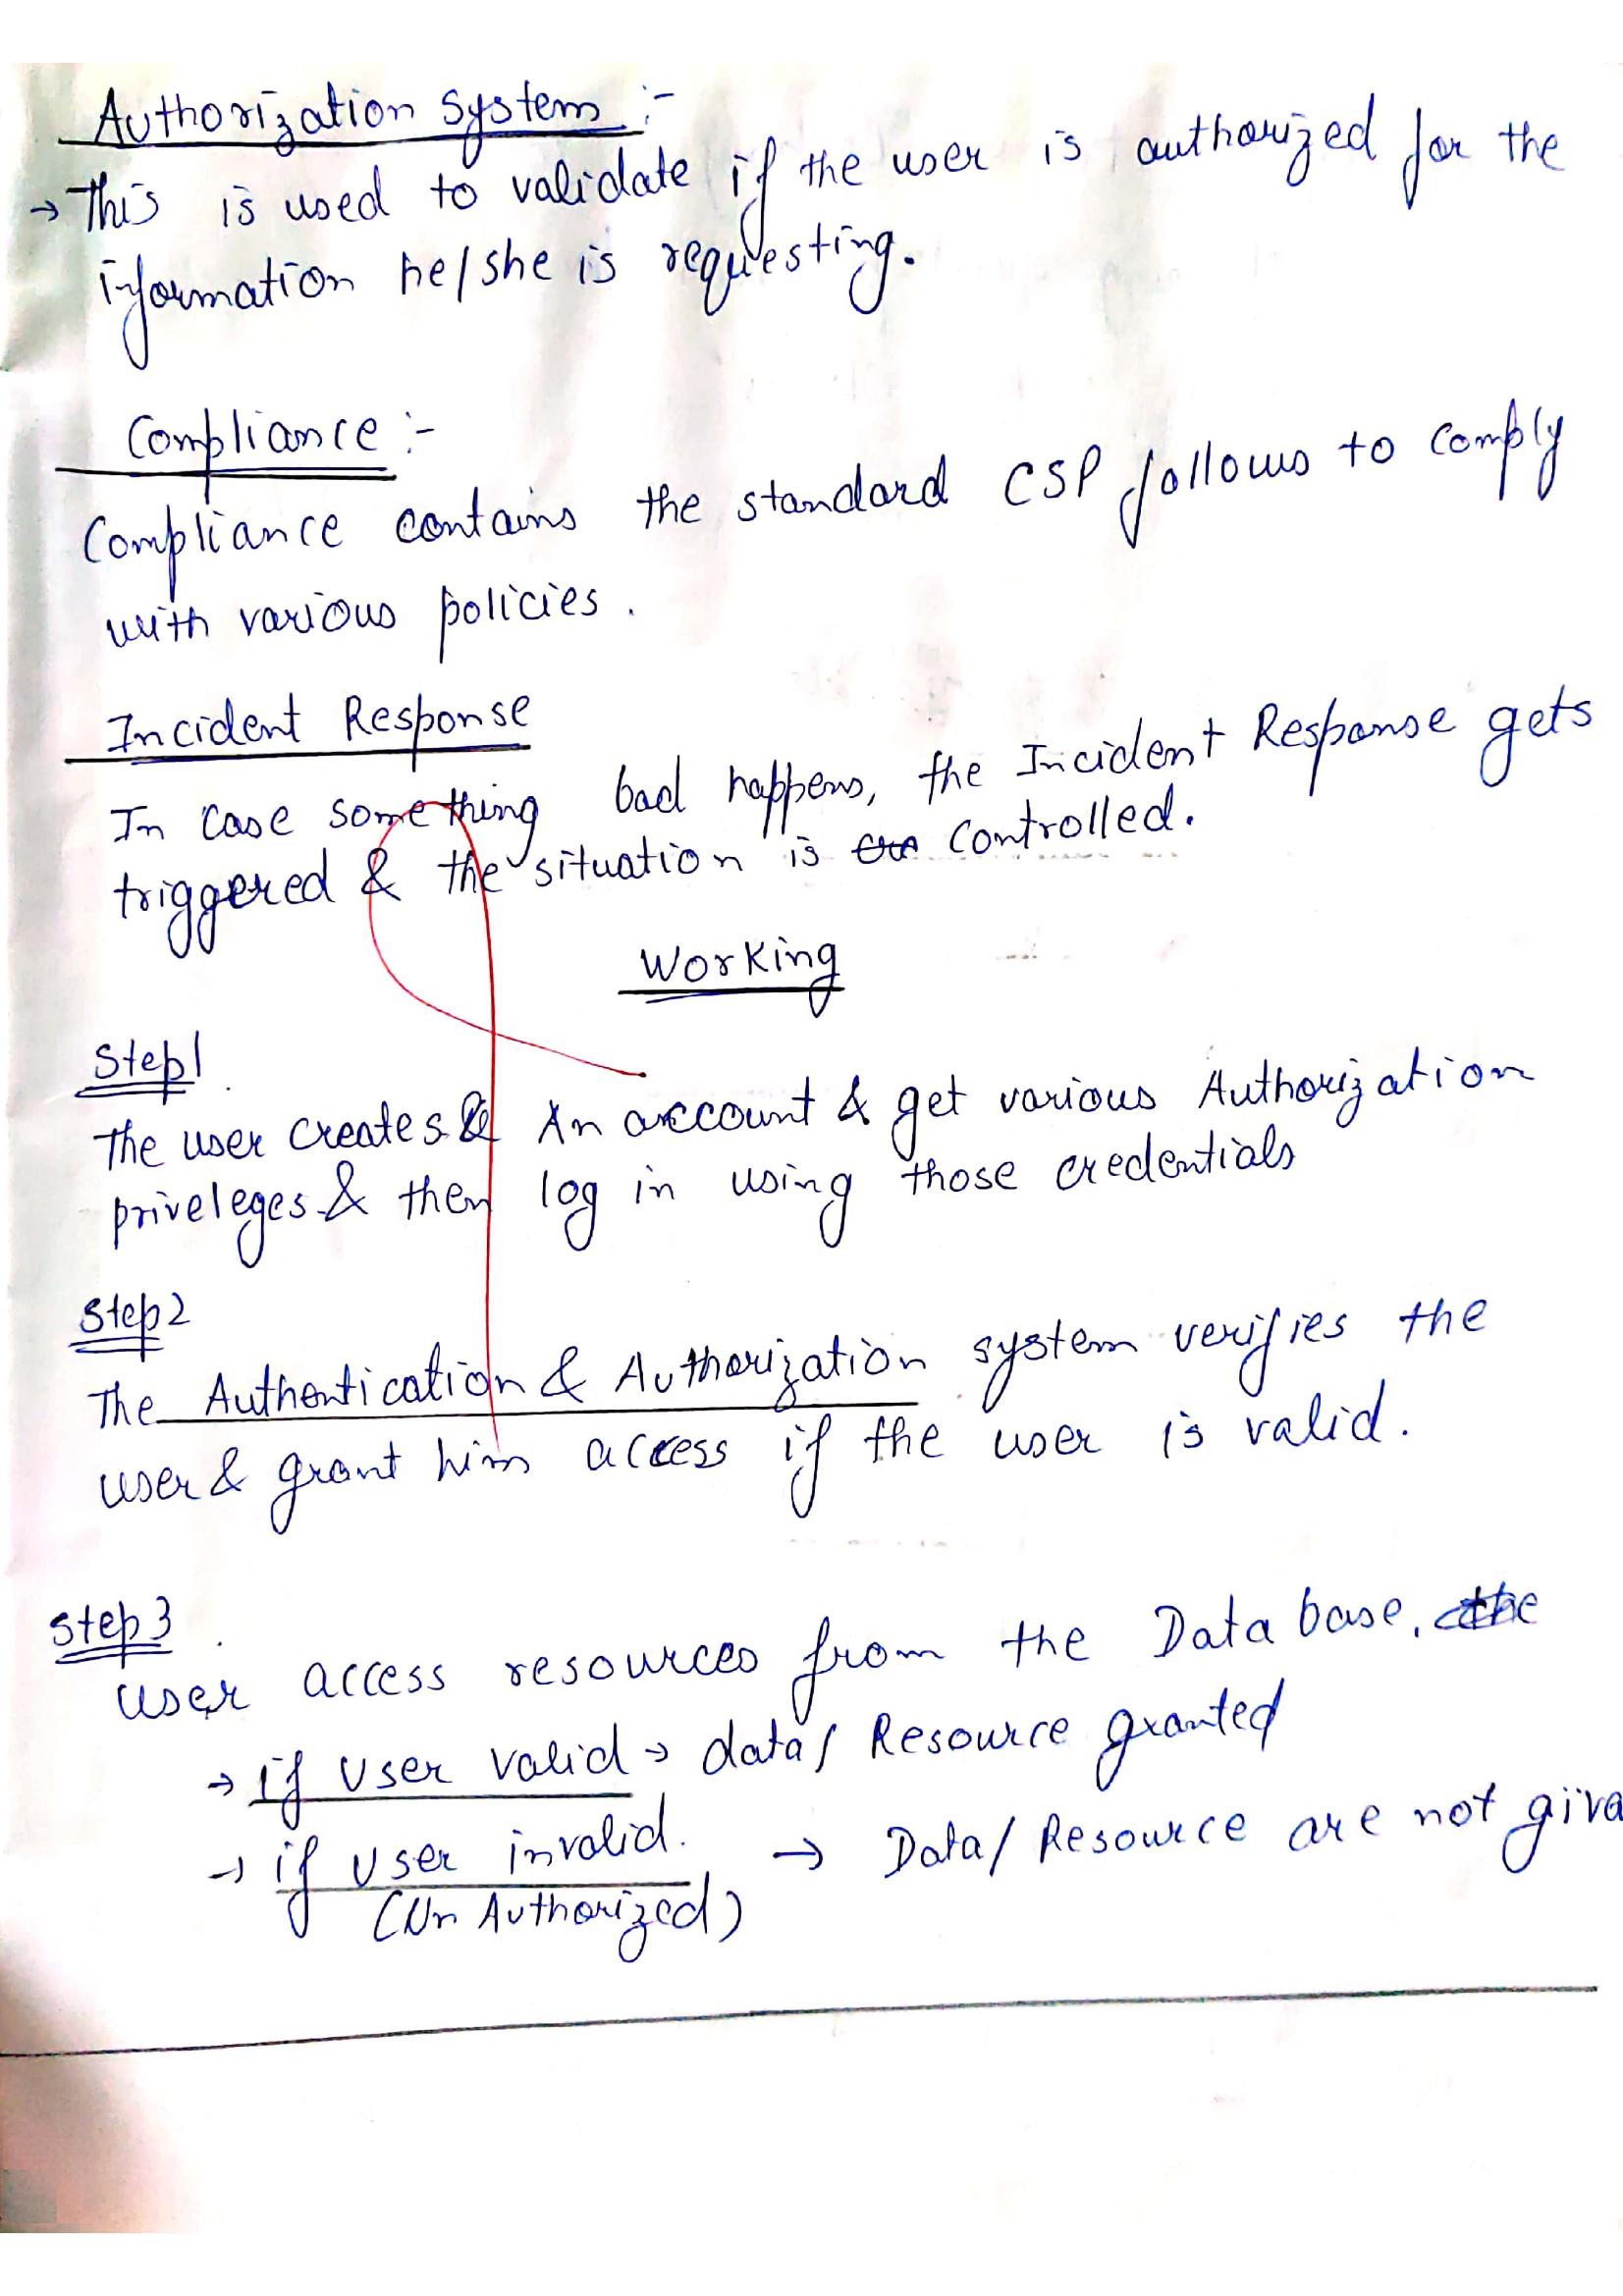 Authorization System :-
→ This is used to validate if the user is authorized for the
information he/she is requesting.
Compliance :-
Compliance contains the standard CSP follows to comply
with various policies.
Incident Response
In case something bad happens, the Incident Response gets
triggered & the situation is controlled.
Working
Step1
The user creates An account & get various Authorization
priveleges & then log in using those credentials
Step2
The Authentication & Authorization system verifies the
user & grant him access if the user is valid.
Step3
User access resources from the Data base, the
→ if User valid → data/ Resource granted
→ if User invalid. → Data/ Resource are not give
(Un Authorized)